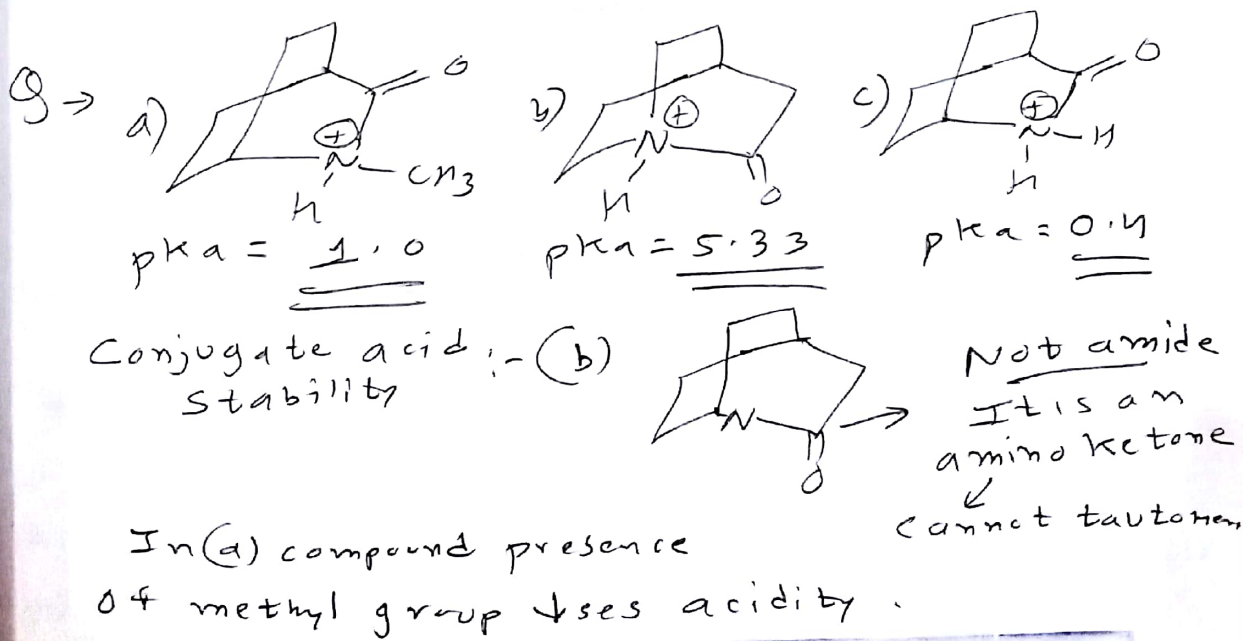 Q → a) O b) c) O
⊕ ⊕ ⊕
N – CH3 N N – H
H H O H
pKa = 1.0 pKa = 5.33 pKa = 0.4
Conjugate acid :- (b) Not amide
stability It is an
N amino ketone
O Cannot tautomer
In (a) compound presence
of methyl group ↓ses acidity.